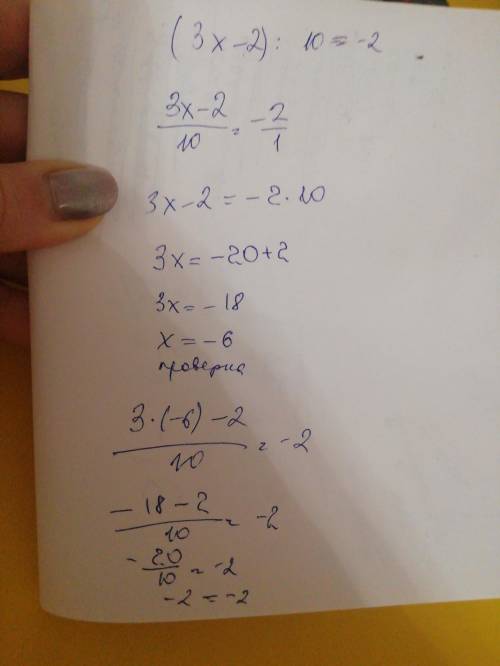 (3x-2): 10 = -2
3x-2/10 = -2/1
3x-2 = -2·10
3x = -20+2
3x = -18
x = -6
проверка
3·(-6)-2/10 = -2
-18-2/10 = -2
-20/10 = -2
-2 = -2